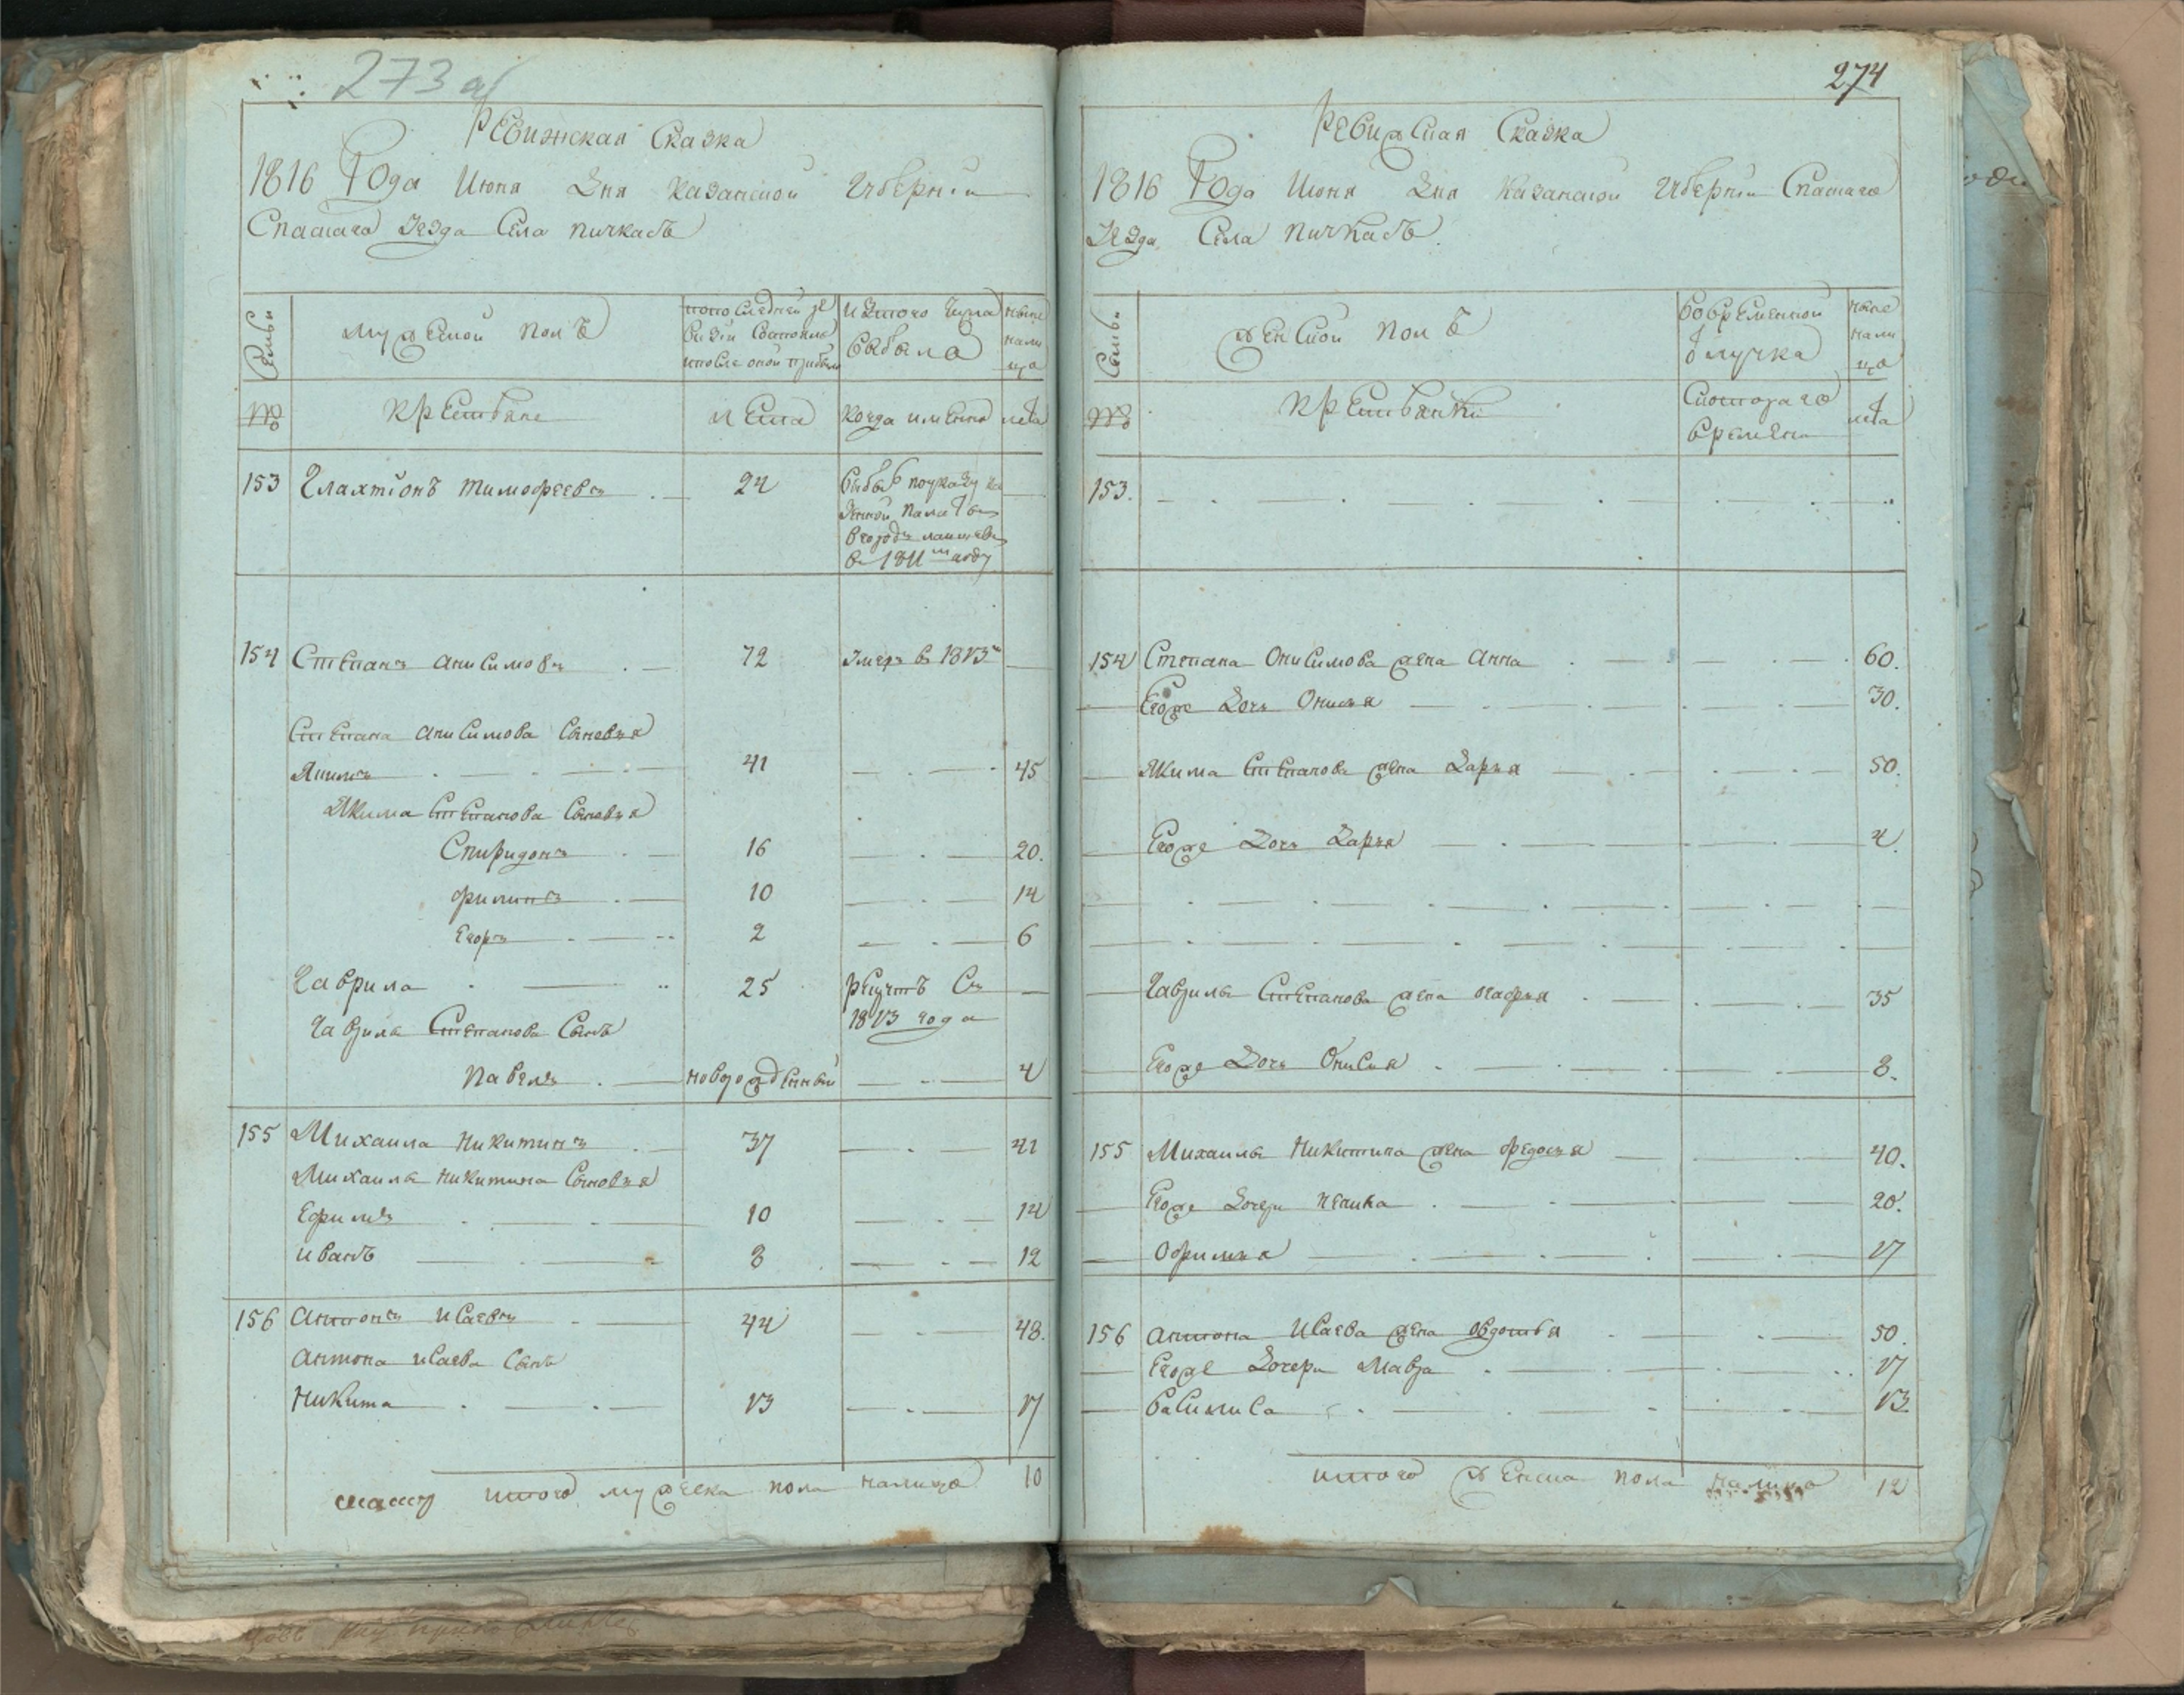 273 об
Ревижская Сказка
1816 Года Июня Дня Казанской Губернии
Спаскаго уезда Села Пичкасъ
Семьи
мужеской полъ
по последней ре
визіи состояло
и после оной прибыло
из того числа
выбыло
ныне
нали
цо
№
крестьяне
лета
когда имянно
лета
153 Галахтіонъ Тимофеевъ 24
выбыв по указу ка
зенной палаты
в город Лаишев
в 1811м году
154 Степанъ Анисимовъ 72 умеръ в 1813м
Степана Анисимова Сыновья
Якимъ 41 45
Якима Степанова Сыновья
Спиридонъ 16 20.
Филипъ 10 14
Егоръ 2 6
Гаврила 25 рекрутъ Съ
1813 года
Гаврила Степанова Сынъ
Павелъ новорожденный 4
155 Михаила Никитинъ 37 41
Михаила Никитина Сыновья
Ефимъ 10 14
Иванъ 8 12
156 Антонъ Исаевъ 44 48.
Антона Исаева Сынъ
Никита 13 17
итого мужеска пола налицо 10
274
Ревижская Сказка
1816 Года Июня Дня Казанской Губерніи Спаскаго
уезда Села Пичкасъ.
Семьи
женской полъ
во временной
отлучке
ныне
нали
цо
№
крестьянки
с котораго
времени
лета
153.
154 Степана Онисимова жена Анна 60.
Егоже Дочь Онисья 30.
Якима Степанова жена Дарья 50.
Егоже Дочь Дарья 4.
Гаврила Степанова жена Агафья 35
Егоже Дочь Онисия 8.
155 Михаила Никитина жена Федосья 40.
Егоже Дочери 20.
Офимья 17
156 Антона Исаева жена Овдотья 50.
Егоже Дочери Мавра 17
Василиса 13.
итого женска пола налицо 12